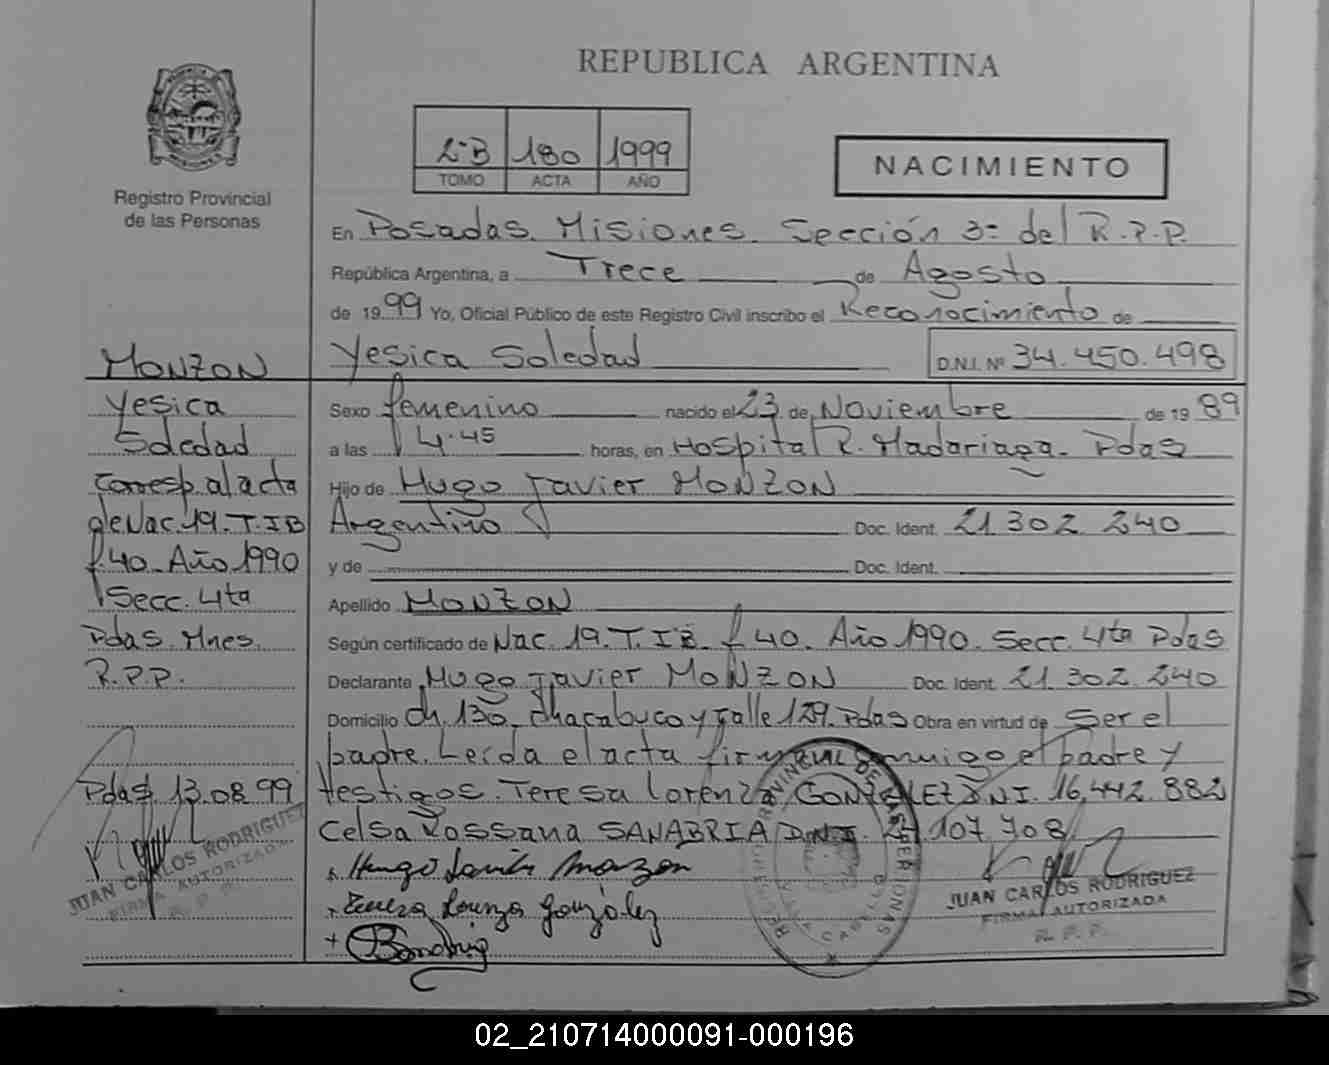 REPUBLICA ARGENTINA
2ºB 180 1999
TOMO ACTA AÑO
NACIMIENTO
Registro Provincial
de las Personas
En Posadas. Misiones. Sección 3ª del R.P.P.
República Argentina, a Trece de Agosto
de 1999 Yo, Oficial Público de este Registro Civil inscribo el Reconocimiento de
Yesica Soledad D.N.I. Nº 34.450.498
Sexo femenino nacido el 23 de Noviembre de 1989
a las 4.45 horas, en Hospital R. Madariaga. Pdas
Hijo de Hugo Javier MONZON
Argentino Doc. Ident. 21.302.240
y de Doc. Ident.
Apellido MONZON
Según certificado de Nac. 19. T. I B. f 40. Año 1990. Secc. 4ta Pdas
Declarante Hugo Javier MONZON Doc. Ident. 21.302.240
Domicilio Ch. 130. Chacabuco y Calle 129. Pdas Obra en virtud de Ser el
padre. Leída el acta firman conmigo el padre y
testigos. Teresa Lorenza GONZALEZ DNI. 16.442.882
Celsa Rossana SANABRIA D.N.I. 107 708
Hugo Javier Monzon
Teresa Lorenza González
JUAN CARLOS RODRIGUEZ
FIRMA AUTORIZADA
R. P. P.
MONZON
Yesica
Soledad
Corresp. al acta
de Nac. 19. T. I B
f. 40. Año 1990
Secc. 4ta
Pdas. Mnes.
R.P.P.
Pdas 13.08.99
JUAN CARLOS RODRIGUEZ
FIRMA AUTORIZADA
R. P. P.
02_210714000091-000196